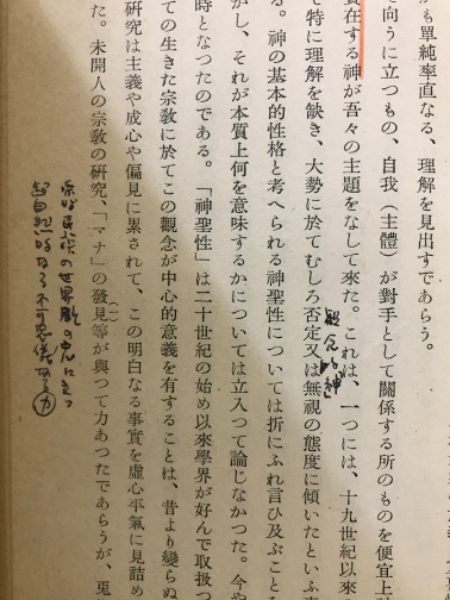 も單純率直なる、理解を見出すであらう。
向うに立つもの、自我（主體）が對手として關係する所のものを便宜上
實在する神が吾々の主題をなして來た。これは、一つには、十九世紀以來
特に理解を缺き、大勢に於てむしろ否定又は無視の態度に傾いたといふ
觀念的神
る。神の基本的性格と考へられる神聖性については折にふれ言ひ及ぶこと
がし、それが本質上何を意味するかについては立入つて論じなかつた。今や
時となつたのである。「神聖性」は二十世紀の始め以來學界が好んで取扱つ
ての生きた宗敎に於てこの觀念が中心的意義を有することは、昔より變らぬ
硏究は主義や成心や偏見に累されて、この明白なる事實を虛心平氣に見詰め
た。未開人の宗敎の硏究、「マナ」の發見等が與つて力あつたであらうが、兎
（一）
民族の世界觀の
超自然的なる不可思議なる力